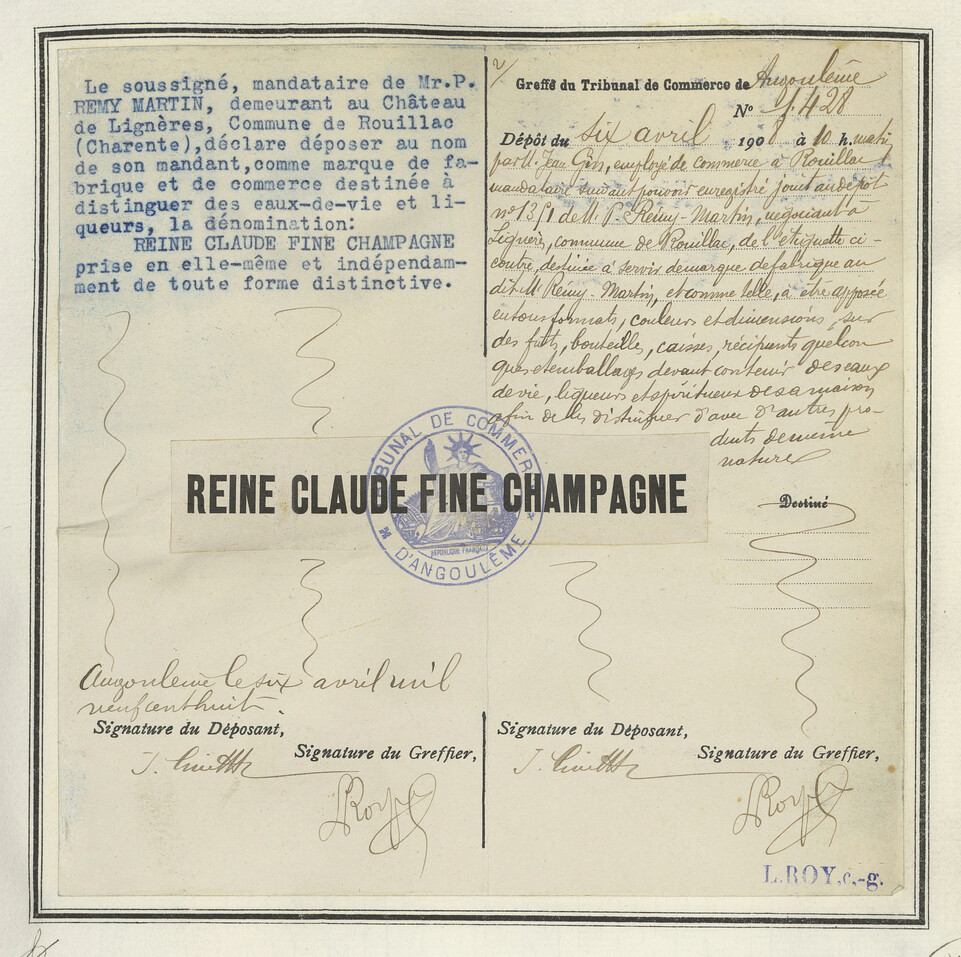 Le soussigné, mandataire de Mr.P.
REMY MARTIN, demeurant au Château
de Lignères, Commune de Rouillac
(Charente),déclare déposer au nom
de son mandant,comme marque de fa-
brique et de commerce destinée à
distinguer des eaux-de-vie et li-
queurs, la dénomination:
REINE CLAUDE FINE CHAMPAGNE
prise en elle-même et indépendam-
ment de toute forme distinctive.
Greffe du Tribunal de Commerce de Angoulême
N° 9428
Dépôt du six avril 1908 à 10 h. matin
par M. Jean employé de commerce à Rouillac
mandataire suivant pouvoir enregistré joint au dépôt
n° 1351 de M. P. Rémy-Martin, négociant à
Lignères, commune de Rouillac, de l'étiquette ci-
contre, destinée à servir de marque de fabrique au
dit M. Rémy-Martin, et comme telle, à être apposée
en tous formats, couleurs et dimensions, sur
des fûts, bouteilles, caisses, récipients quelcon
ques et emballages devant contenir des eaux
de vie, liqueurs et spiritueux de sa maison
afin de les distinguer d'avec d'autres pro-
duits de même
nature
REINE CLAUDE FINE CHAMPAGNE
TRIBUNAL DE COMMERCE
D'ANGOULÊME
RÉPUBLIQUE FRANÇAISE
Destiné
Angoulême le six avril mil
neuf cent huit.
Signature du Déposant,
Signature du Greffier,
LRoy
Signature du Déposant,
Signature du Greffier,
LRoy
L.ROY,c.-g.